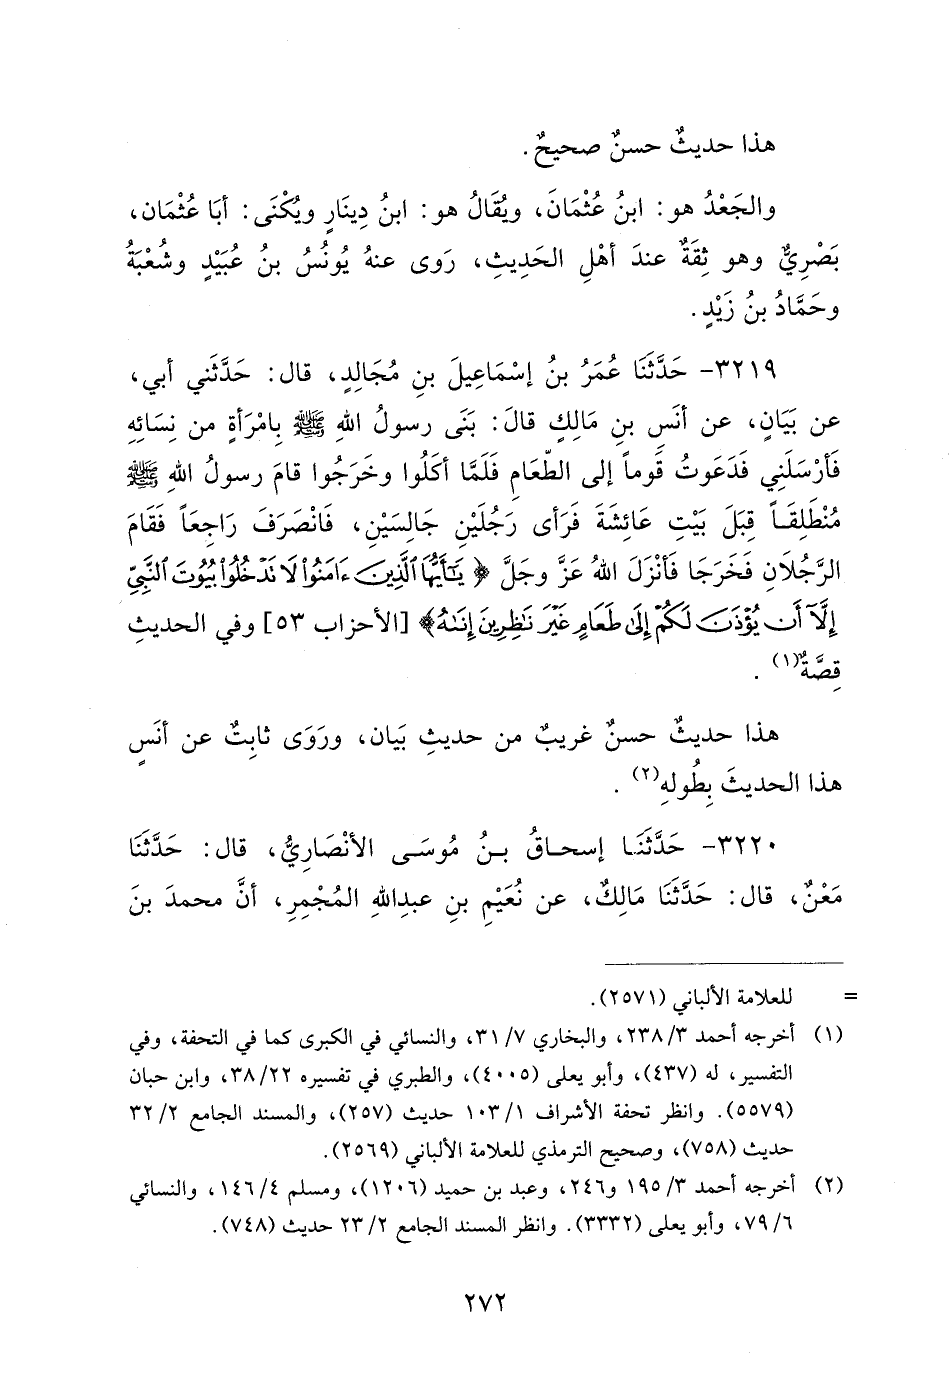 هذا حديثٌ حسنٌ صحيحٌ.
والجَعْدُ هو: ابنُ عُثْمَانَ، ويُقَالُ هو: ابنُ دِينَارٍ ويُكْنَى: أبَا عُثْمَان،
بَصْرِيٌّ وهو ثِقَةٌ عندَ أهْلِ الحَدِيثِ، رَوى عنهُ يُونُسُ بنُ عُبَيْدٍ وشُعْبَةُ
وحَمَّادُ بنُ زَيْدٍ.
٣٢١٩- حَدَّثَنَا عُمَرُ بنُ إسْمَاعِيلَ بنِ مُجَالِدٍ، قال: حَدَّثَني أبي،
عن بَيَانٍ، عن أنَسِ بنِ مَالِكٍ قالَ: بَنَى رسولُ اللهِ ﷺ بِامْرَأةٍ من نِسَائِهِ
فَأرْسَلَنِي فَدَعَوتُ قَوماً إلى الطَّعَامِ فَلَمَّا أكَلُوا وخَرَجُوا قامَ رسولُ اللهِ ﷺ
مُنْطَلِقَاً قِبَلَ بَيْتِ عَائِشَةَ فَرَأى رَجُلَيْنِ جَالِسَيْنِ، فَانْصَرَفَ رَاجِعَاً فَقَامَ
الرَّجُلَانِ فَخَرَجَا فَأنْزَلَ اللهُ عَزَّ وجَلَّ ﴿ يَٰٓأَيُّهَا ٱلَّذِينَ ءَامَنُوا۟ لَا تَدْخُلُوا۟ بُيُوتَ ٱلنَّبِيِّ
إِلَّآ أَن يُؤْذَنَ لَكُمْ إِلَىٰ طَعَامٍ غَيْرَ نَٰظِرِينَ إِنَىٰهُ﴾ [الأحزاب ٥٣] وفي الحديثِ
قِصَّةٌ(١).
هذا حديثٌ حسنٌ غريبٌ من حديثِ بَيَان، ورَوَى ثابِتٌ عن أنَسٍ
هذا الحديثَ بِطُولهِ(٢).
٣٢٢٠- حَدَّثَنَا إسحاقُ بنُ مُوسَى الأنْصَارِيُّ، قال: حَدَّثَنَا
مَعْنٌ، قال: حَدَّثَنَا مَالِكٌ، عن نُعَيْمِ بنِ عبدِاللهِ المُجْمِرِ، أنَّ محمدَ بنَ
= للعلامة الألباني (٢٥٧١).
(١) أخرجه أحمد ٣/ ٢٣٨، والبخاري ٧/ ٣١، والنسائي في الكبرى كما في التحفة، وفي
التفسير، له (٤٣٧)، وأبو يعلى (٤٠٠٥)، والطبري في تفسيره ٢٢/ ٣٨، وابن حبان
(٥٥٧٩). وانظر تحفة الأشراف ١/ ١٠٣ حديث (٢٥٧)، والمسند الجامع ٢/ ٣٢
حديث (٧٥٨)، وصحيح الترمذي للعلامة الألباني (٢٥٦٩).
(٢) أخرجه أحمد ٣/ ١٩٥ و٢٤٦، وعبد بن حميد (١٢٠٦)، ومسلم ٤/ ١٤٦، والنسائي
٦/ ٧٩، وأبو يعلى (٣٣٣٢). وانظر المسند الجامع ٢/ ٢٣ حديث (٧٤٨).
٢٧٢